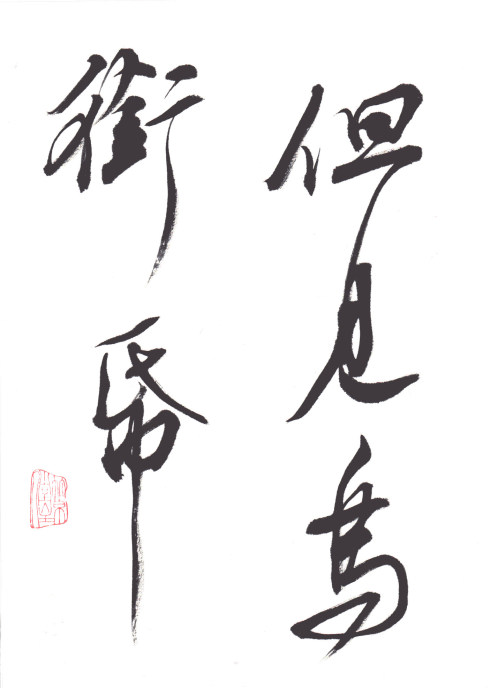 但見烏
銜帋